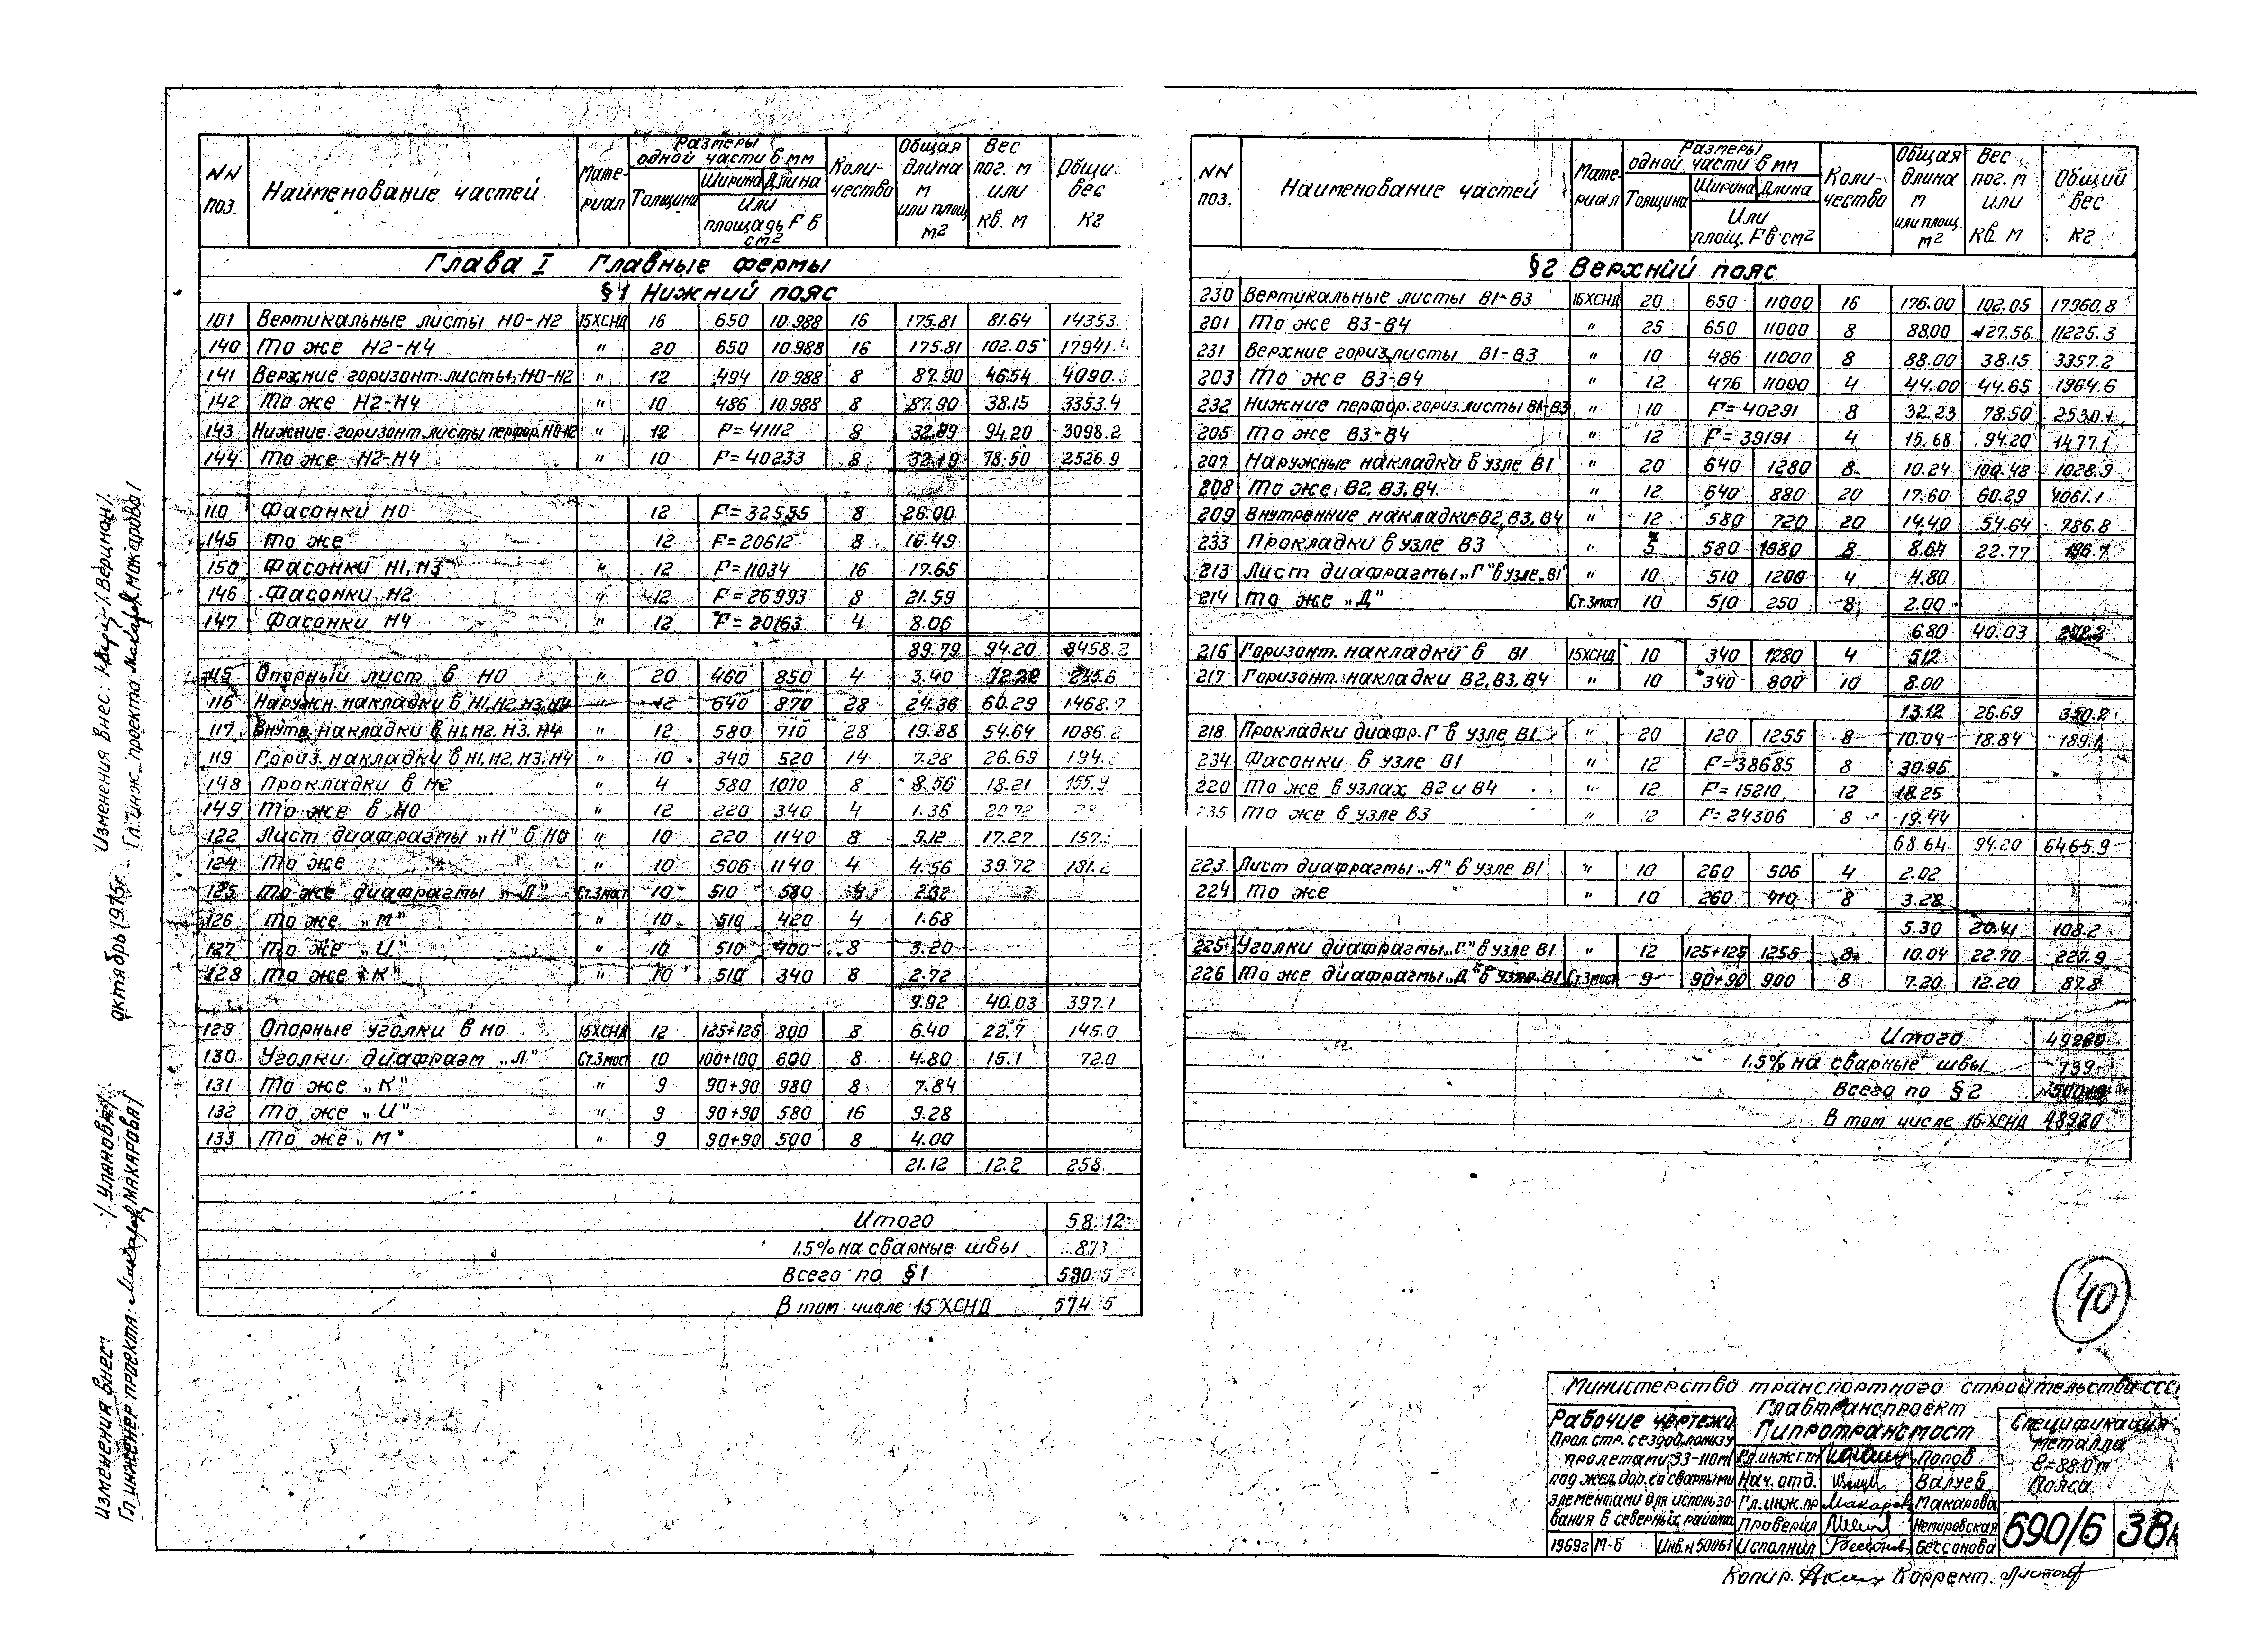 NN поз. Наименование частей Мате-риал Размеры одной части в мм Толщина Ширина Длина Или площадь F в см2 Коли-чество Общая длина м или площ м2 Вес пог. м или кв. м Общи. вес кг
Глава I Главные фермы
§1 Нижний пояс
101 Вертикальные листы Н0-Н2 15ХСНД 16 650 10.988 16 175.81 81.64 14353.
140 То же Н2-Н4 " 20 650 10.988 16 175.81 102.05 17941.4
141 Верхние горизонт. листы Н0-Н2 " 12 494 10.988 8 87.90 46.54 4090.
142 То же Н2-Н4 " 10 486 10.988 8 87.90 38.15 3353.4
143 Нижние горизонт. листы перфор. Н0-Н2 " 12 F=41112 8 32.89 94.20 3098.2
144 То же Н2-Н4 " 10 F=40233 8 32.19 78.50 2526.9
110 Фасонки Н0 12 F=32595 8 26.00
145 То же 12 F=20612 8 16.49
150 Фасонки Н1, Н3 " 12 F=11034 16 17.65
146 Фасонки Н2 " 12 F=26993 8 21.59
147 Фасонки Н4 " 12 F=20163 4 8.06
89.79 94.20 8458.2
115 Опорный лист в Н0 " 20 460 850 4 3.40
116 Наружн. накладки в Н1, Н2, Н3, Н4 " 12 640 870 28 24.36 60.29 1468.7
117 Внутр. накладки в Н1, Н2, Н3, Н4 " 12 580 710 28 19.88 54.64 1086.2
119 Гориз. накладки в Н1, Н2, Н3, Н4 " 10 340 520 14 7.28 26.69 194.
148 Прокладки в Н2 " 4 580 1070 8 8.56 18.21 155.9
149 То же в Н0 " 12 220 340 4 1.36 20.72
122 Лист диафрагмы „Н" в Н0 " 10 220 1140 8 9.12 17.27 157.
124 То же " 10 506 1140 4 4.56 39.72 181.2
125 То же диафрагмы „Л" Ст.3мост 10 510 580 4 2.32
126 То же „М" " 10 510 420 4 1.68
127 То же „И" " 10 510 400 8 3.20
128 То же „К" " 10 510 340 8 2.72
9.92 40.03 397.1
129 Опорные уголки в Н0 15ХСНД 12 125+125 800 8 6.40 22.7 145.0
130 Уголки диафрагм „Л" Ст.3мост 10 100+100 600 8 4.80 15.1 72.0
131 То же „К" " 9 90+90 980 8 7.84
132 То же „И" " 9 90+90 580 16 9.28
133 То же „М" " 9 90+90 500 8 4.00
21.12 12.2 258
Итого 58 12
1.5% на сварные швы 873
Всего по §1 590 5
В том числе 15 ХСНД 574 5
NN поз. Наименование частей Мате-риал Размеры одной части в мм Толщина Ширина Длина Или площ. F в см2 Коли-чество Общая длина м или площ м2 Вес пог. м или кв. м Общий вес кг
§2 Верхний пояс
230 Вертикальные листы В1-В3 15ХСНД 20 650 11000 16 176.00 102.05 17960.8
201 То же В3-В4 " 25 650 11000 8 88.00 127.56 11225.3
231 Верхние гориз. листы В1-В3 " 10 486 11000 8 88.00 38.15 3357.2
203 То же В3-В4 " 12 476 11000 4 44.00 44.65 1964.6
232 Нижние перфор. гориз. листы В1-В3 " 10 F=40291 8 32.23 78.50 2530.1
205 То же В3-В4 " 12 F=39191 4 15.68 94.20 1477.1
207 Наружные накладки в узле В1 " 20 640 1280 8 10.24 100.48 1028.9
208 То же В2, В3, В4. " 12 640 880 20 17.60 60.29 1061.1
209 Внутренние накладки В2, В3, В4 " 12 580 720 20 14.40 54.64 786.8
233 Прокладки в узле В3 " 5 580 1080 8 8.64 22.77 196.7
213 Лист диафрагмы „Г" в узле В1 " 10 510 1200 4 4.80
214 То же „Д" Ст.3мост 10 510 250 8 2.00
6.80 40.03
216 Горизонт. накладки в В1 15ХСНД 10 340 1280 4 5.12
217 Горизонт. накладки В2, В3, В4 " 10 340 800 10 8.00
13.12 26.69 350.2
218 Прокладки диафр. Г в узле В1 " 20 120 1255 8 10.04 18.84 189.1
234 Фасонки в узле В1 " 12 F=38685 8 30.95
220 То же в узлах В2 и В4 " 12 F=15210 12 18.25
235 То же в узле В3 " 12 F=24306 8 19.44
68.64 94.20 6465.9
223 Лист диафрагмы „А" в узле В1 " 10 260 506 4 2.02
224 То же " 10 260 410 8 3.28
5.30 20.41 108.2
225 Уголки диафрагмы „Г" в узле В1 " 12 125+125 1255 8 10.04 22.70 227.9
226 То же диафрагмы „Д" в узле В1 Ст.3мост 9 90+90 900 8 7.20 12.20 87.8
Итого 49280
1.5% на сварные швы 739
Всего по §2
В том числе 15 ХСНД 48920
40
Министерство транспортного строительства СССР
Главтранспроект
Гипротрансмост
Рабочие чертежи
Прол. стр. с ездой понизу
пролетами 33-110м
под жел. дор. со сварными
элементами для использо-
вания в северных районах
1969г М-Б Инв. N 50061
Гл. инж. ГТМ Попов
Нач. отд. Валуев
Гл. инж. пр. Макарова
Проверил Немировская
Исполнил Бессонова
Спецификация
металла
ℓ=88.0 м
Пояса
690/6 38
Копир. Коррект.
Изменения внес: /Верцман/
Гл. инж. проекта Макарова /Макарова/
октябрь 1975г.
Изменения внес: /Уланова/
Гл. инженер проекта: /Макарова/